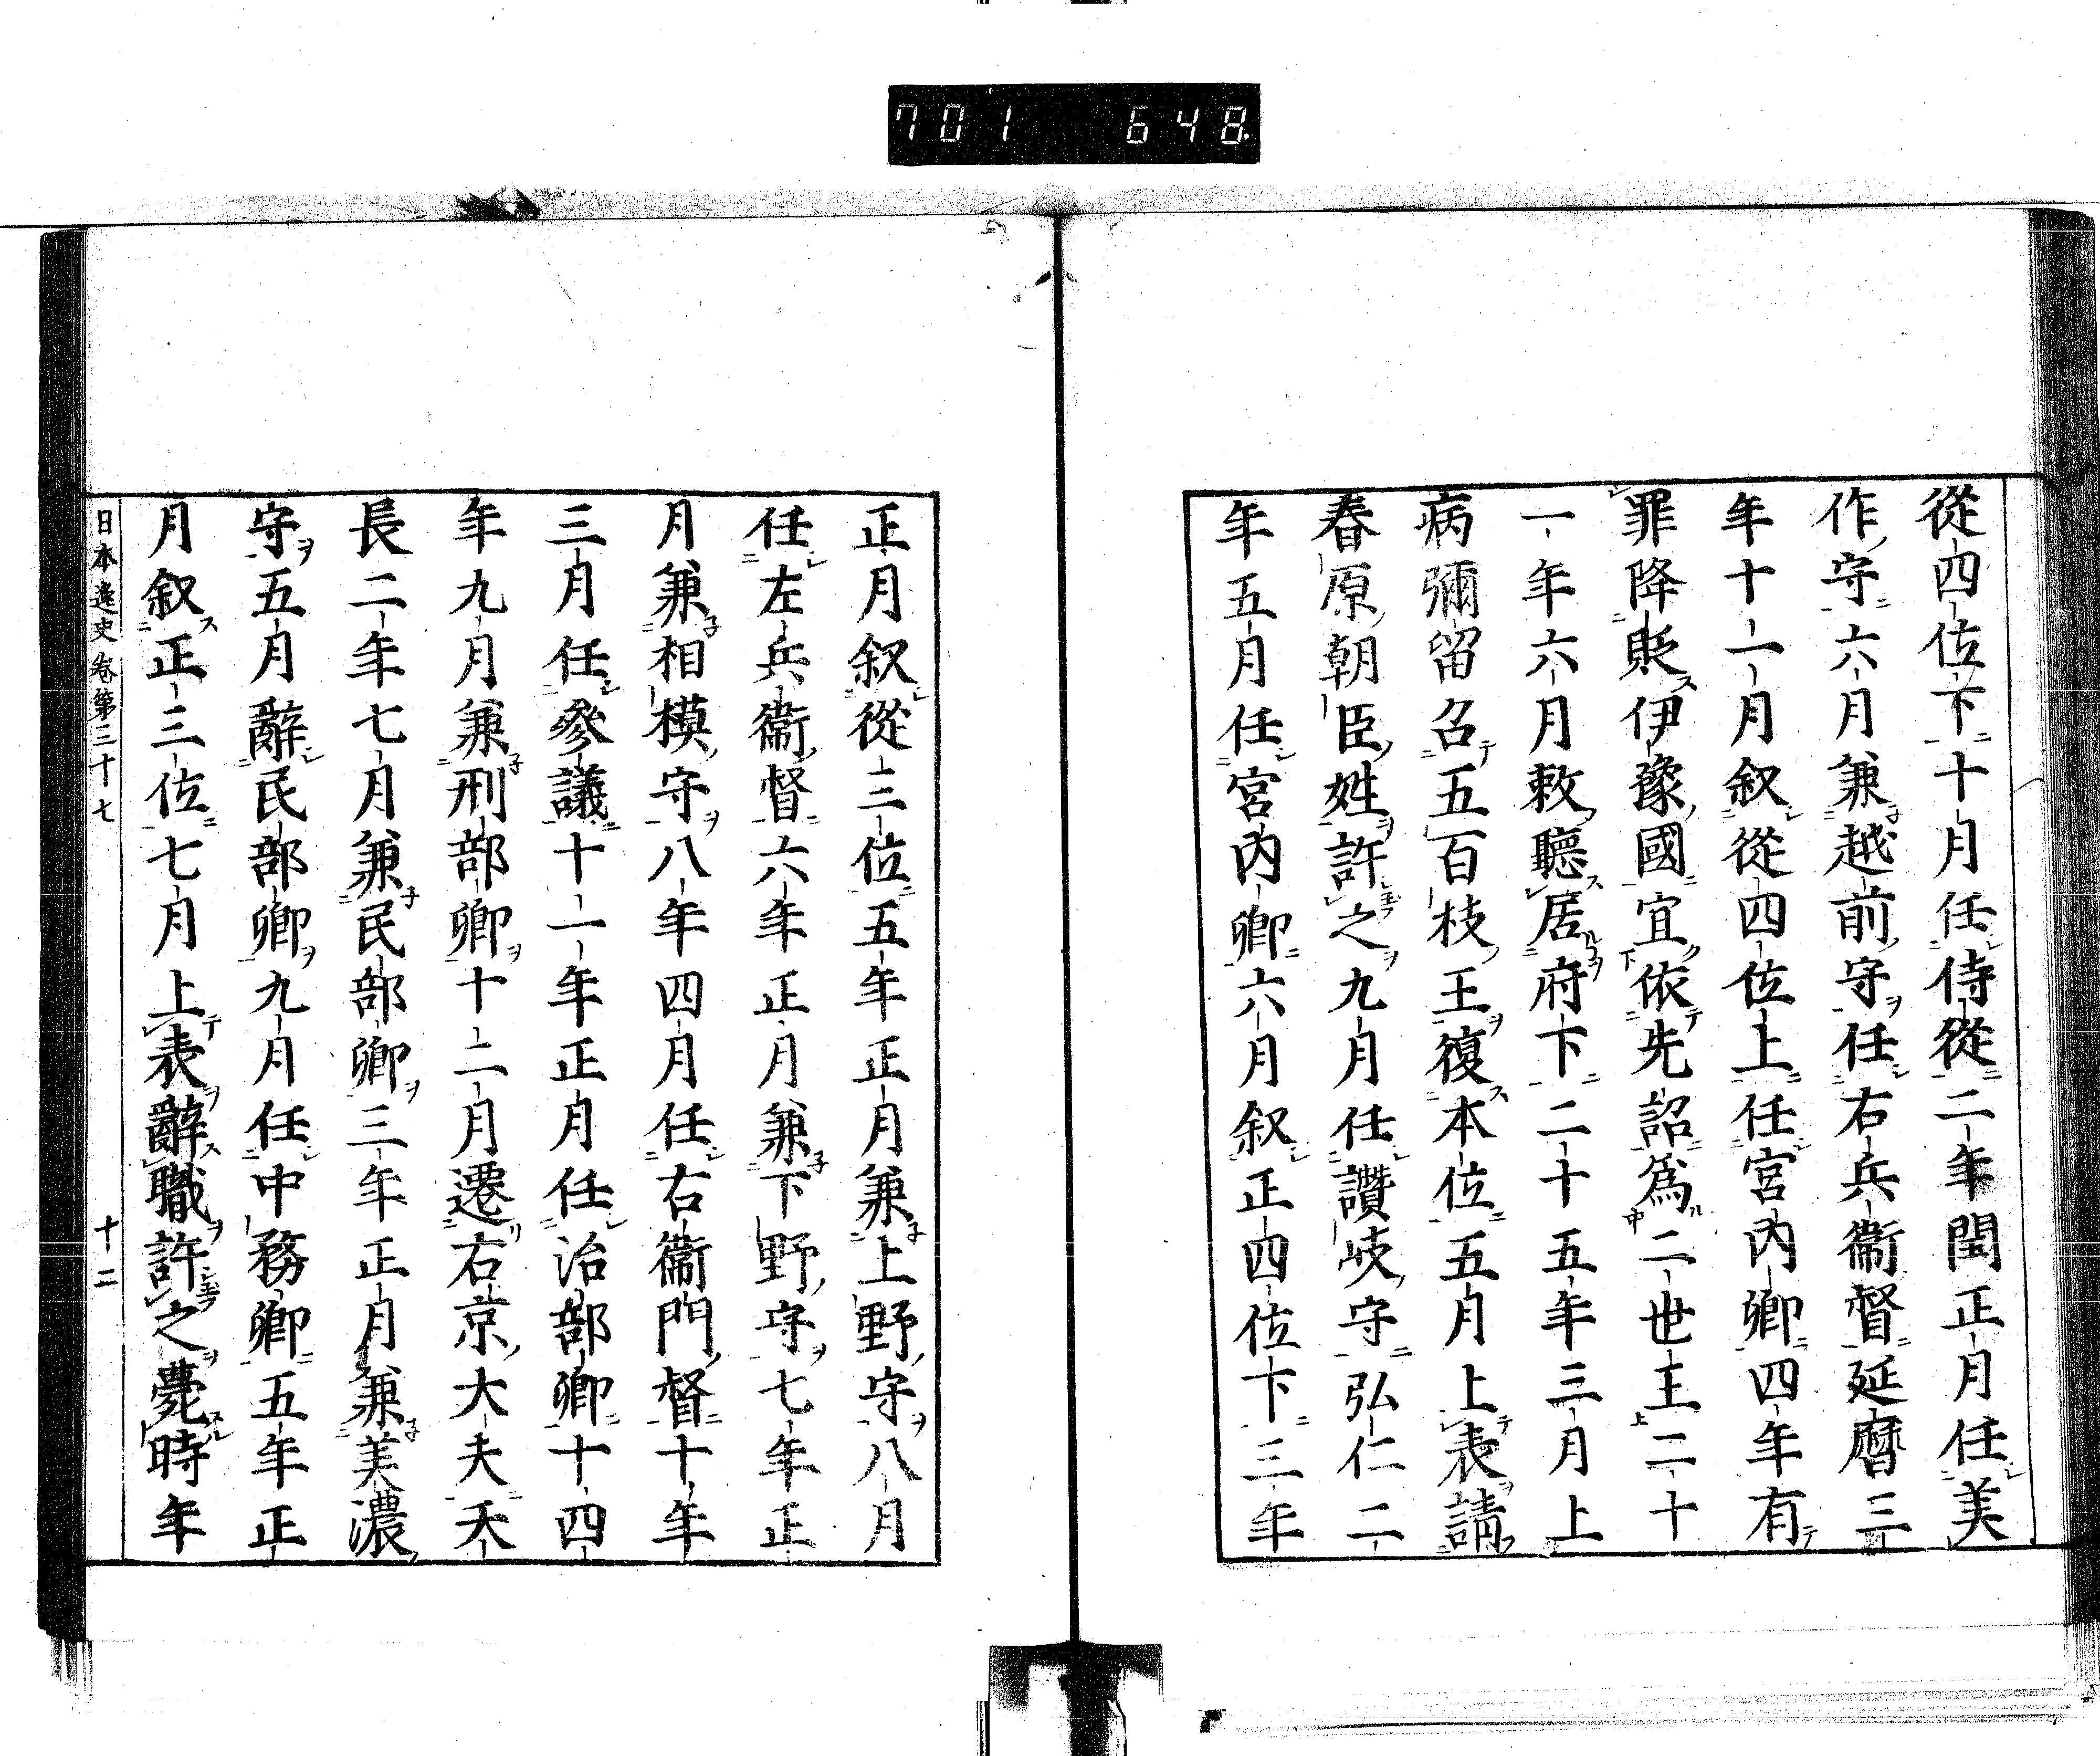 701 648
從四位下十月任侍從二年閏正月任美
作守六月兼越前守任右兵衞督延曆三
年十一月叙從四位上任宮內卿四年有
罪降貶伊豫國宜依先詔爲二世王二十
一年六月敕聽居府下二十五年三月上
病彌留召五百枝王復本位五月上表請
春原朝臣姓許之九月任讚岐守弘仁二
年五月任宮內卿六月叙正四位下三年
正月叙從三位五年正月兼上野守八月
任左兵衞督六年正月兼下野守七年正
月兼相模守八年四月任右衞門督十年
三月任參議十一年正月任治部卿十四
年九月兼刑部卿十二月遷右京大夫天
長二年七月兼民部卿三年正月兼美濃
守五月辭民部卿九月任中務卿五年正
月叙正三位七月上表辭職許之薨時年
日本逸史卷第三十七 十二